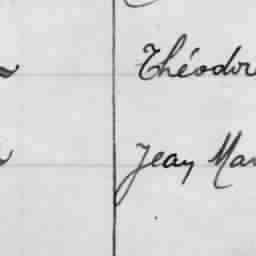 Théodor
Jean Mar